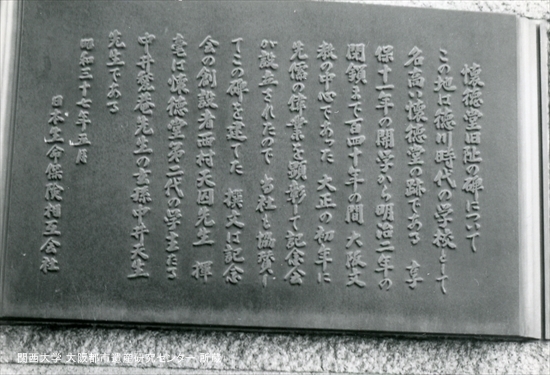 懐徳堂旧阯の碑について
この地は徳川時代の学校として
名高い懐徳堂の跡である 享
保十一年の開学から明治二年の
閉鎖まで百四十年の間 大阪文
教の中心であった 大正の初年に
先儒の偉業を顕彰して記念会
が設立されたので 当社も協賛し
てこの碑を建てた 撰文は記念
会の創設者西村天囚先生 揮
毫は懐徳堂第二代の学主たる
中井甃庵先生の玄孫中井天生
先生である
昭和三十七年五月
日本生命保険相互会社
関西大学 大阪都市遺産研究センター 所蔵